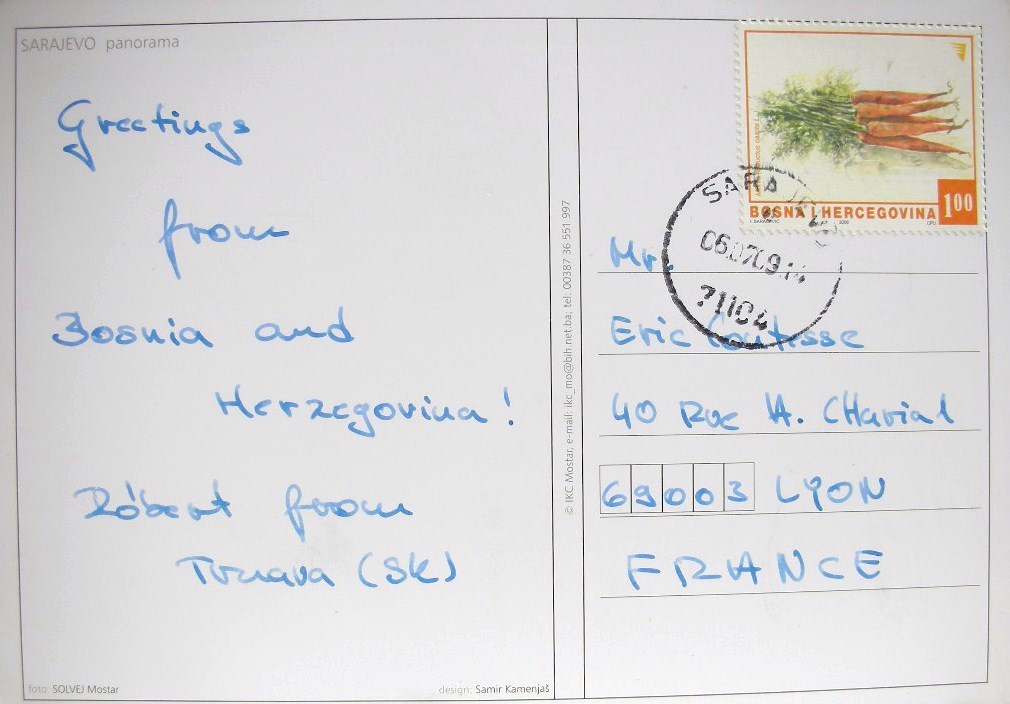 SARAJEVO panorama
Greetings
from
Bosnia and
Herzegovina!
Róbert from
Trnava (SK)
foto: SOLVEJ Mostar
design: Samir Kamenjaš
© IKC Mostar, e-mail: ikc_mo@bih.net.ba; tel: 00387 36 551 997
BOSNA I HERCEGOVINA
100
SARAJEVO
06.07.09.14
71104
Mr.
Eric Contesse
40 Rue A. CHavial
69003 LYON
FRANCE